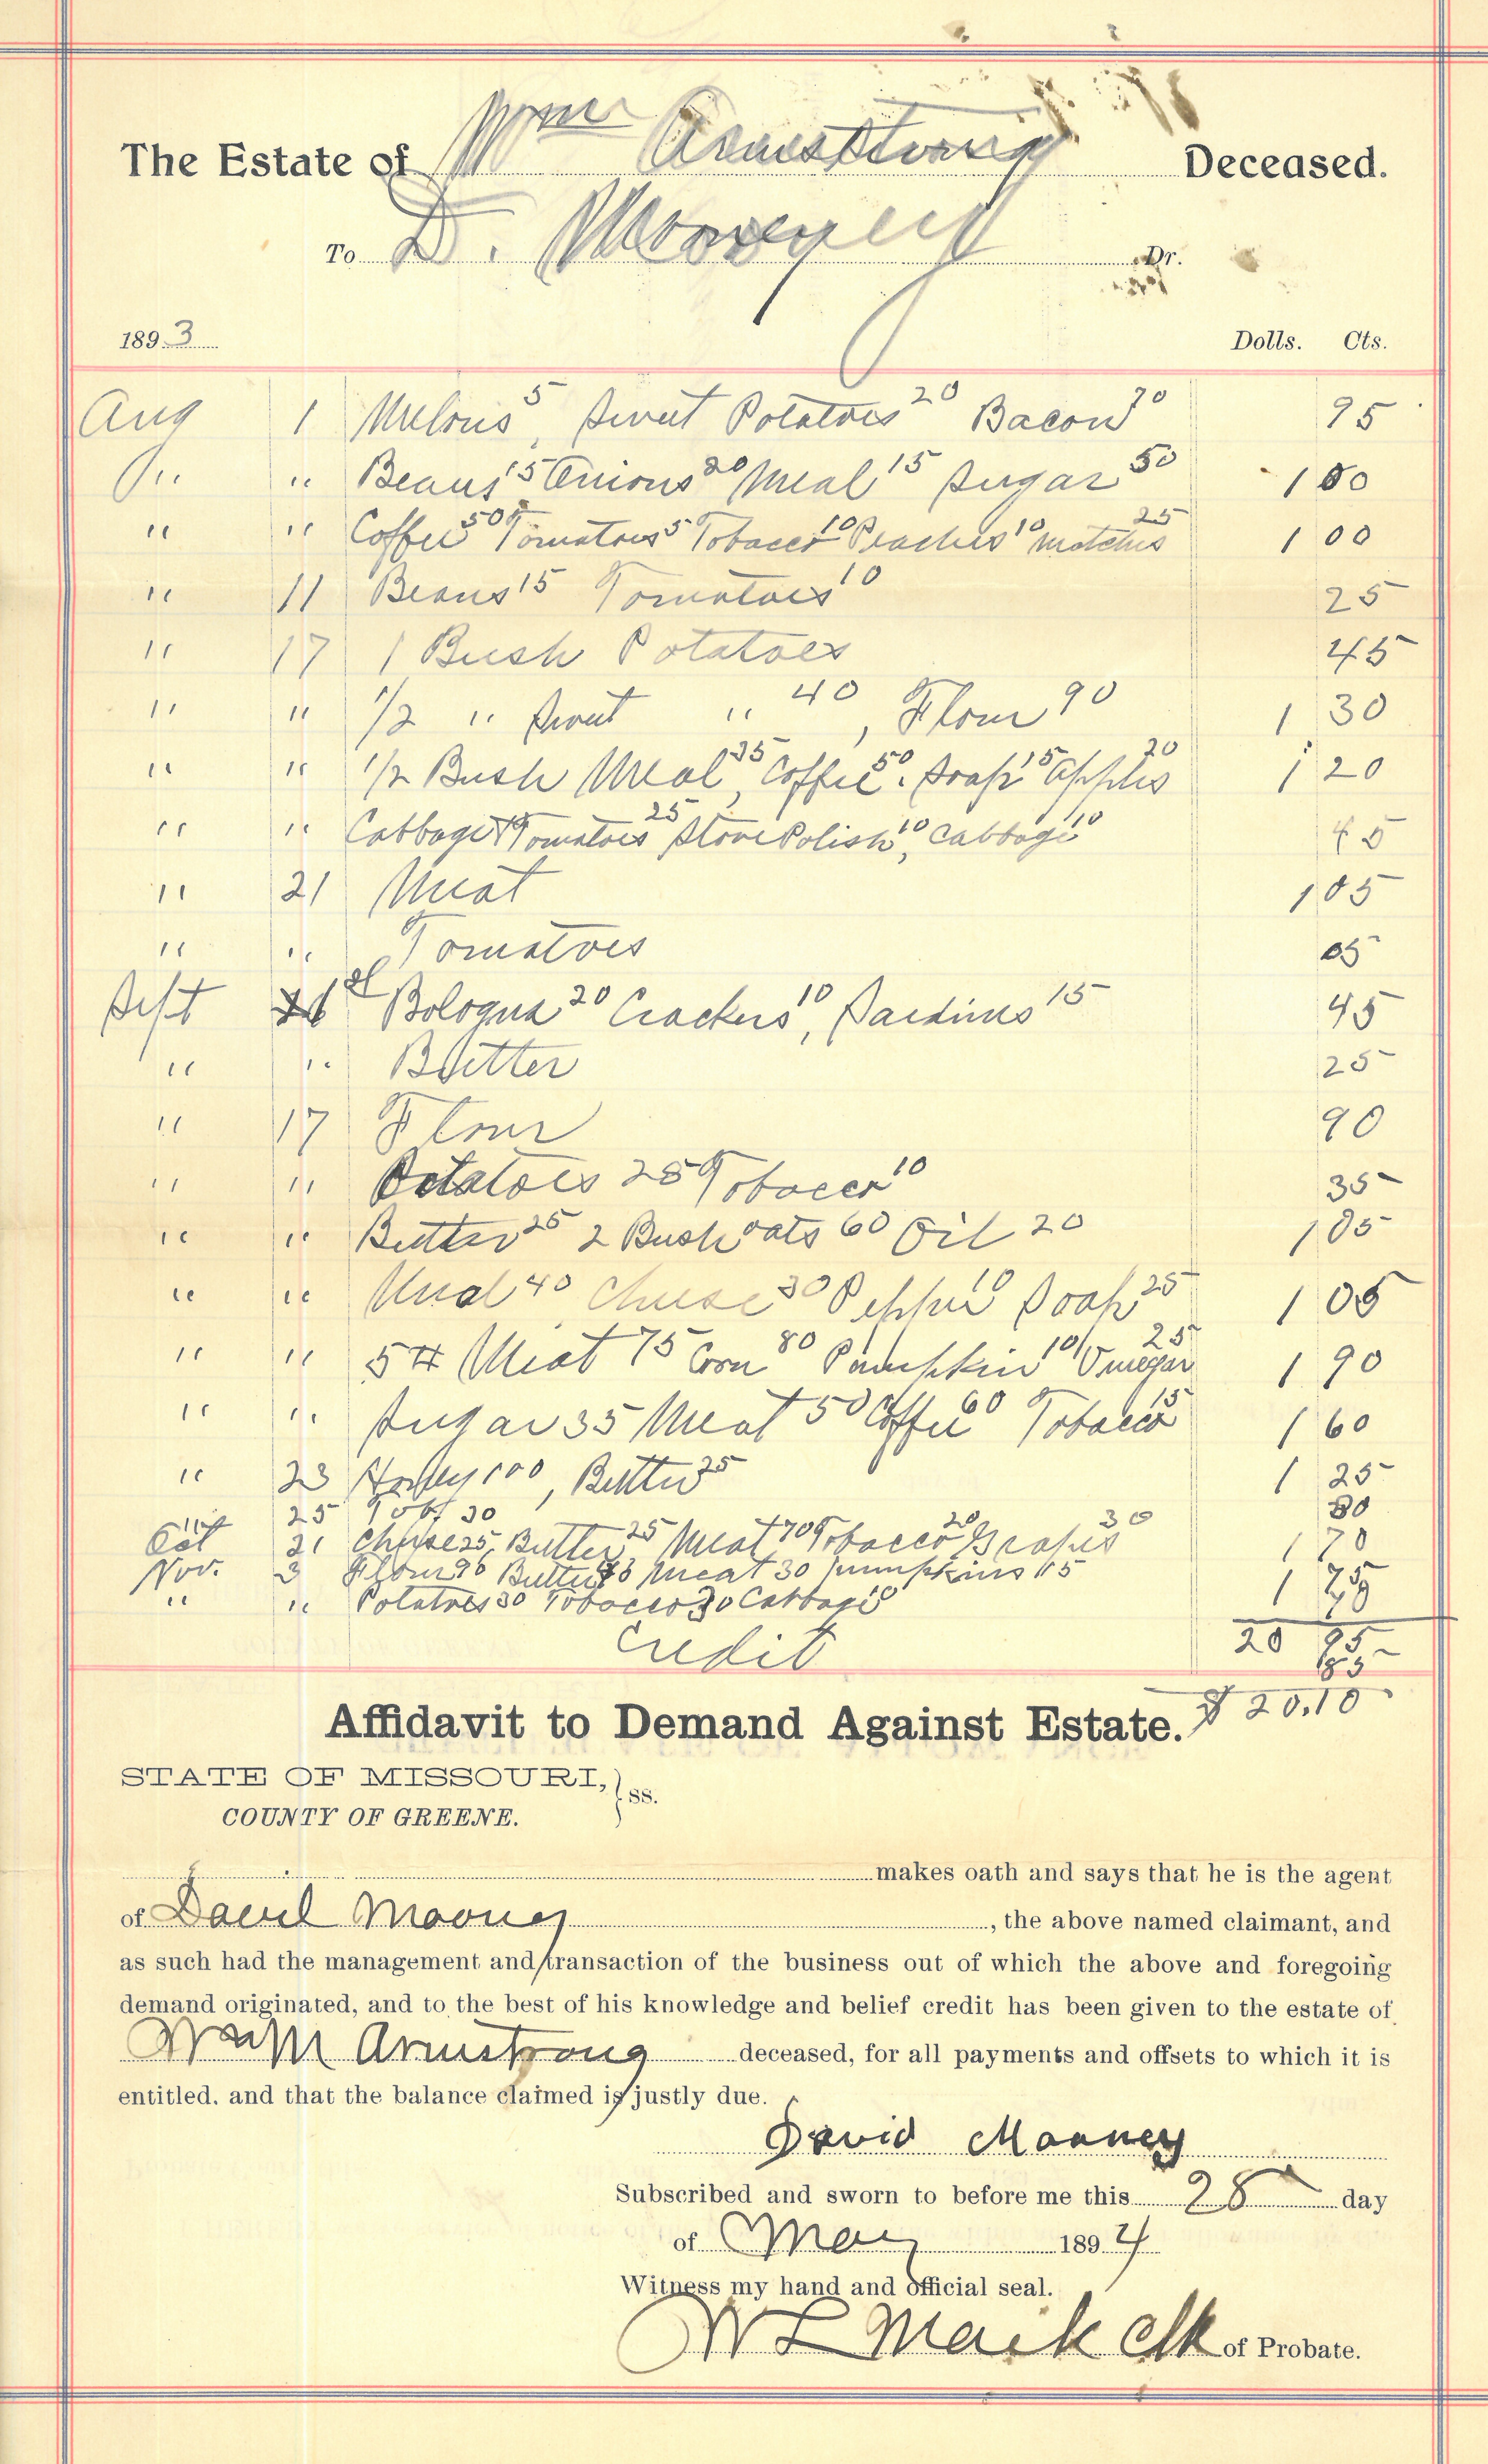 The Estate of Wm Armstrong Deceased.
To D. Mooney Dr.
1893 Dolls. Cts.
Aug 1 Melons 5, Sweet Potatoes 20 Bacon 70 95
" " Beans 15 Onions 20 Meal 15 Sugar 50 1 00
" " Coffee 50 Tomatoes 5 Tobacco 10 Peaches 10 matches 25 1 00
" 11 Beans 15 Tomatoes 10 25
" 17 1 Bush Potatoes 45
" " 1/2 " Sweet " 40, Flour 90 1 30
" " 1/2 Bush Meal 35, Coffee 50. Soap 15 Apples 20 1 20
" " Cabbage Tomatoes 25 Stove Polish 10, Cabbage 10 45
" 21 Meat 1 05
" " Tomatoes 05
Sept Bologna 20 Crackers 10, Sardines 15 45
" " Butter 25
" 17 Flour 90
" " Potatoes 25 Tobacco 10 35
" " Butter 25 2 Bush oats 60 Oil 20 1 05
" " Meal 40 Cheese 30 Pepper 10 Soap 25 1 05
" " 5 # Meat 75 Corn 80 Pumpkin 10 Vinegar 25 1 90
" " Sugar 35 Meat 50 Coffee 60 Tobacco 15 1 60
" 23 100, Butter 25 1 25
" 25 30 30
Oct 21 Cheese 25, Butter 25 Meat 70 Tobacco 20 Grapes 30 1 70
Nov. 3 Flour 90 Butter Meat 30 Pumpkins 15 1
" " Potatoes 30 Tobacco 30 Cabbage 10
20 95
Credit 85
$ 20.10
Affidavit to Demand Against Estate.
STATE OF MISSOURI, } ss.
COUNTY OF GREENE.
makes oath and says that he is the agent
of David Mooney, the above named claimant, and
as such had the management and transaction of the business out of which the above and foregoing
demand originated, and to the best of his knowledge and belief credit has been given to the estate of
Wm Armstrong deceased, for all payments and offsets to which it is
entitled. and that the balance claimed is justly due.
David Mooney
Subscribed and sworn to before me this 28 day
of May 1894
Witness my hand and official seal.
W L Mack Clk of Probate.